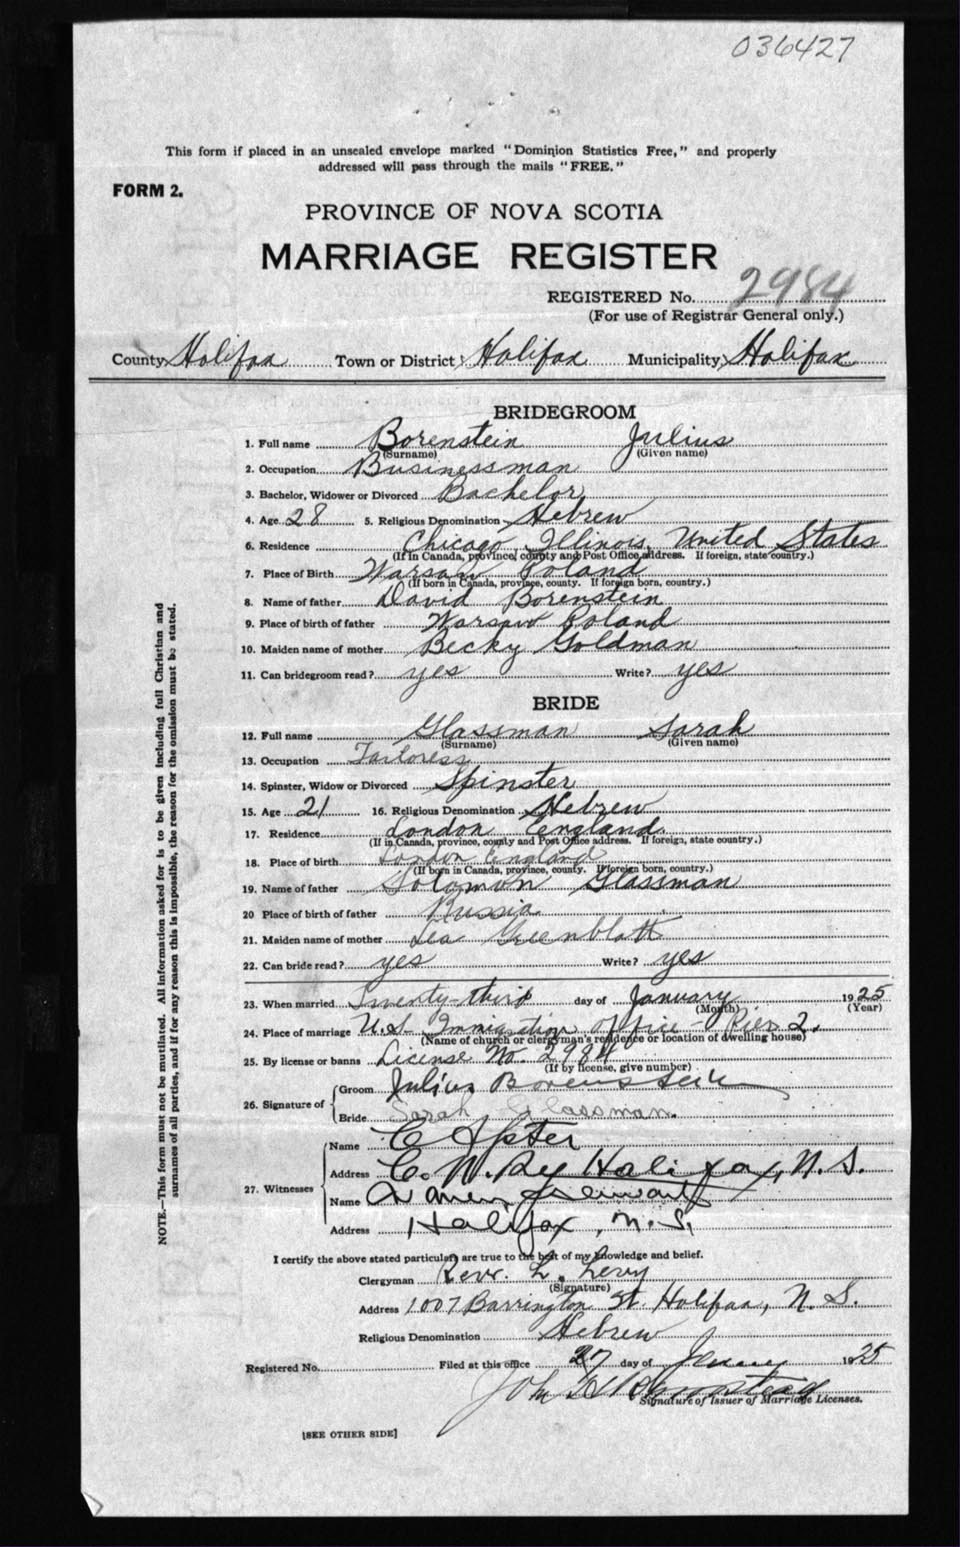 036427
This form if placed in an unsealed envelope marked "Dominion Statistics Free," and properly
addressed will pass through the mails "FREE."
FORM 2.
PROVINCE OF NOVA SCOTIA
MARRIAGE REGISTER
REGISTERED No. 2984
(For use of Registrar General only.)
County Halifax Town or District Halifax Municipality Halifax
BRIDEGROOM
1. Full name Borenstein Julius
(Surname) (Given name)
2. Occupation Businessman
3. Bachelor, Widower or Divorced Bachelor
4. Age 28 5. Religious Denomination Hebrew
6. Residence Chicago, Illinois, United States
(If in Canada, province, county and Post Office address. If foreign, state country.)
7. Place of Birth Warsaw Poland
(If born in Canada, province, county. If foreign born, country.)
8. Name of father David Borenstein
9. Place of birth of father Warsaw Poland
10. Maiden name of mother Becky Goldman
11. Can bridegroom read? yes Write? yes
BRIDE
12. Full name Glassman Sarah
(Surname) (Given name)
13. Occupation Tailoress
14. Spinster, Widow or Divorced Spinster
15. Age 21 16. Religious Denomination Hebrew
17. Residence London England
(If in Canada, province, county and Post Office address. If foreign, state country.)
18. Place of birth London England
(If born in Canada, province, county. If foreign born, country.)
19. Name of father Solomon Glassman
20 Place of birth of father Russia
21. Maiden name of mother Lea Greenblatt
22. Can bride read? yes Write? yes
23. When married Twenty-third day of January 1925
(Month) (Year)
24. Place of marriage U.S. Immigration Office - Pier 2.
(Name of church or clergyman's residence or location of dwelling house)
25. By license or banns License No. 2984
(If by license, give number)
26. Signature of Groom Julius Borenstein
Bride Sarah Glassman.
27. Witnesses
Name
Address C. N. Ry Halifax, N. S.
Name
Address Halifax, N. S.
I certify the above stated particulars are true to the best of my knowledge and belief.
Clergyman Revr. L. Levy
(Signature)
Address 1007 Barrington St. Halifax, N. S.
Religious Denomination Hebrew
Registered No. Filed at this office 27 day of 1925
John
Signature of Issuer of Marriage Licenses.
[SEE OTHER SIDE]
NOTE.—This form must not be mutilated. All information asked for is to be given including full Christian and
surnames of all parties, and if for any reason this is impossible, the reason for the omission must be stated.